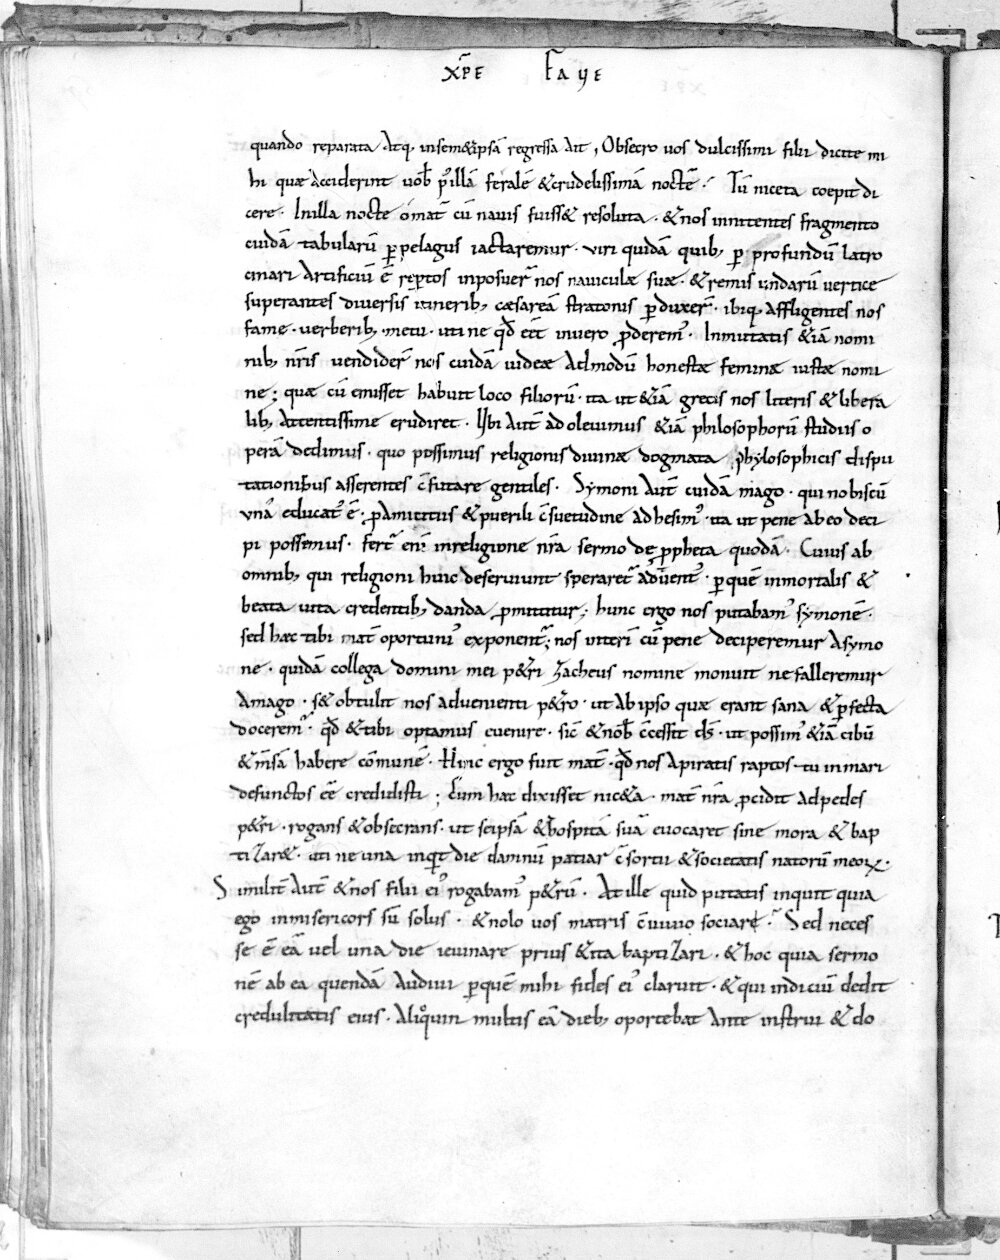 xp̄e faue
quando reparata Atq, insem&ipsā regressa Ait, Obsecro uos dulcissimi filii dicite mi
hi quæ acciderint uob̄ p' illā feralē &crudelissimā noctē. Tū niceta coepit di
cere. Inilla nocte o mat̄ cū nauis fuiss& resoluta. &nos innitentes fragmento
cuidā tabularū p̱ pelagus iactaremur. uiri quidā quib, p̱ profundū latro
cinari Artificiū ē rep̱tos inposuer̄ nos nauiculæ suæ. &remis undarū uertice
superantes diuersis itinerib, cæsareā stratonis p̱duxer̄. ibiq, affligentes nos
fame. uerberib, metu. uti ne qd̄ eēt inuero p̱derem'. Inmutatis &iā nomi
nib, nr̄is uendider̄ nos cuidā iudeæ Admodū honestæ feminæ iustæ nomi
ne; quæ cū emisset habuit loco filiorū. ita ut &iā grecis nos literis &libera
lib, Attentissime erudiret. Ubi Aut̄ adoleuimus &iā philosophorū studiis o
perā dedimus. quo possimus religionis diuinæ dogmata phylosophicis dispu
tationibus asserentes c̄futare gentiles. Symoni Aut̄ cuidā mago. qui nobiscū
una educat' ē; p̱ Amicitiis &puerili c̄suetudine adhesim'. ita ut pene ab eo deci
pi possemus. fert̄ enī inreligione nr̄a sermo de p̱pheta quodā. Cuius ab
omnib, qui religioni huic deseruiunt speraret̄ aduent'. p̱ quē inmortalis &
beata uita credentib, danda p̱mittitur; hunc ergo nos putabam' symonē.
sed hæc tibi mat̄ oportuni' exponent̄; nos interī cū pene deciperemur Asymo
ne. quidā collega domini mei p&ri zacheus nomine monuit ne falleremur
Amago. s& obtulit nos aduenienti p&ro. ut Ab ipso quæ erant sana &p̱fecta
docerem'. qd̄ &tibi optamus euenire. sic̄ &nob̄ c̄cessit ds̄. ut possim' &iā cibū
&m̄sā habere cōmunē. Hinc ergo fuit mat̄. qd̄ nos Apiratis raptos tu inmari
defunctos eē credidisti; Cum hæc dixisset nic&a. mat̄ nr̄a p̱cidit Adpedes
p&ri. rogans &obsecrans. ut seipsā &hospitā suā euocaret sine mora & bap
tizar&. uti ne una inquit die damnū patiar c̄sortii &societatis natorū meoꝝ.
Similit̄ Aut̄ &nos filii ei' rogabam' p&rū. At ille quid putatis inquit quia
ego inmisericors sū solus. &nolo uos matris c̄uiuio sociare? Sed neces
se ē eā uel una die ieiunare prius &ita baptizari. &hoc quia sermo
nē ab ea quendā Audiui p̱ quē mihi fides ei' claruit. &qui indiciū dedit
credulitatis eius. Alioquin multis eā dieb, oportebat Ante instrui &do